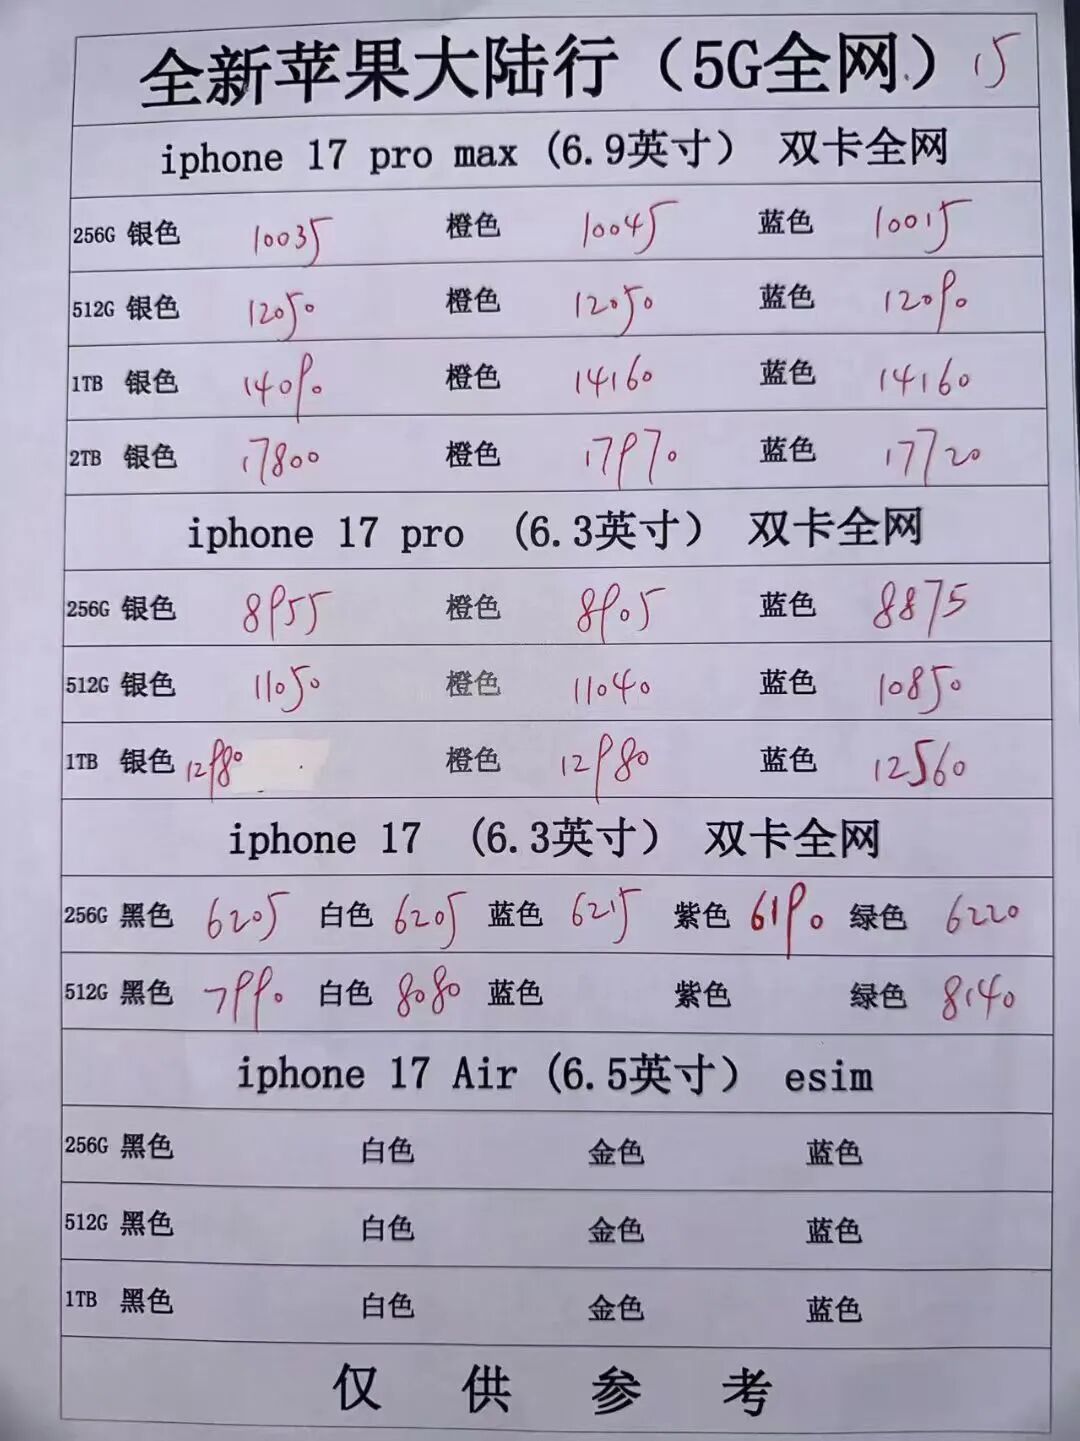 全新苹果大陆行（5G全网）15
iphone 17 pro max (6.9英寸） 双卡全网
256G 银色 10035 橙色 10045 蓝色 10015
512G 银色 12050 橙色 12050 蓝色 12090
1TB 银色 14090 橙色 14160 蓝色 14160
2TB 银色 17800 橙色 17970 蓝色 17720
iphone 17 pro （6.3英寸） 双卡全网
256G 银色 8955 橙色 8905 蓝色 8875
512G 银色 11050 橙色 11040 蓝色 10850
1TB 银色 12980 橙色 12980 蓝色 12560
iphone 17 （6.3英寸） 双卡全网
256G 黑色 6205 白色 6205 蓝色 6215 紫色 6190 绿色 6220
512G 黑色 7990 白色 8080 蓝色 紫色 绿色 8140
iphone 17 Air (6.5英寸） esim
256G 黑色 白色 金色 蓝色
512G 黑色 白色 金色 蓝色
1TB 黑色 白色 金色 蓝色
仅供参考